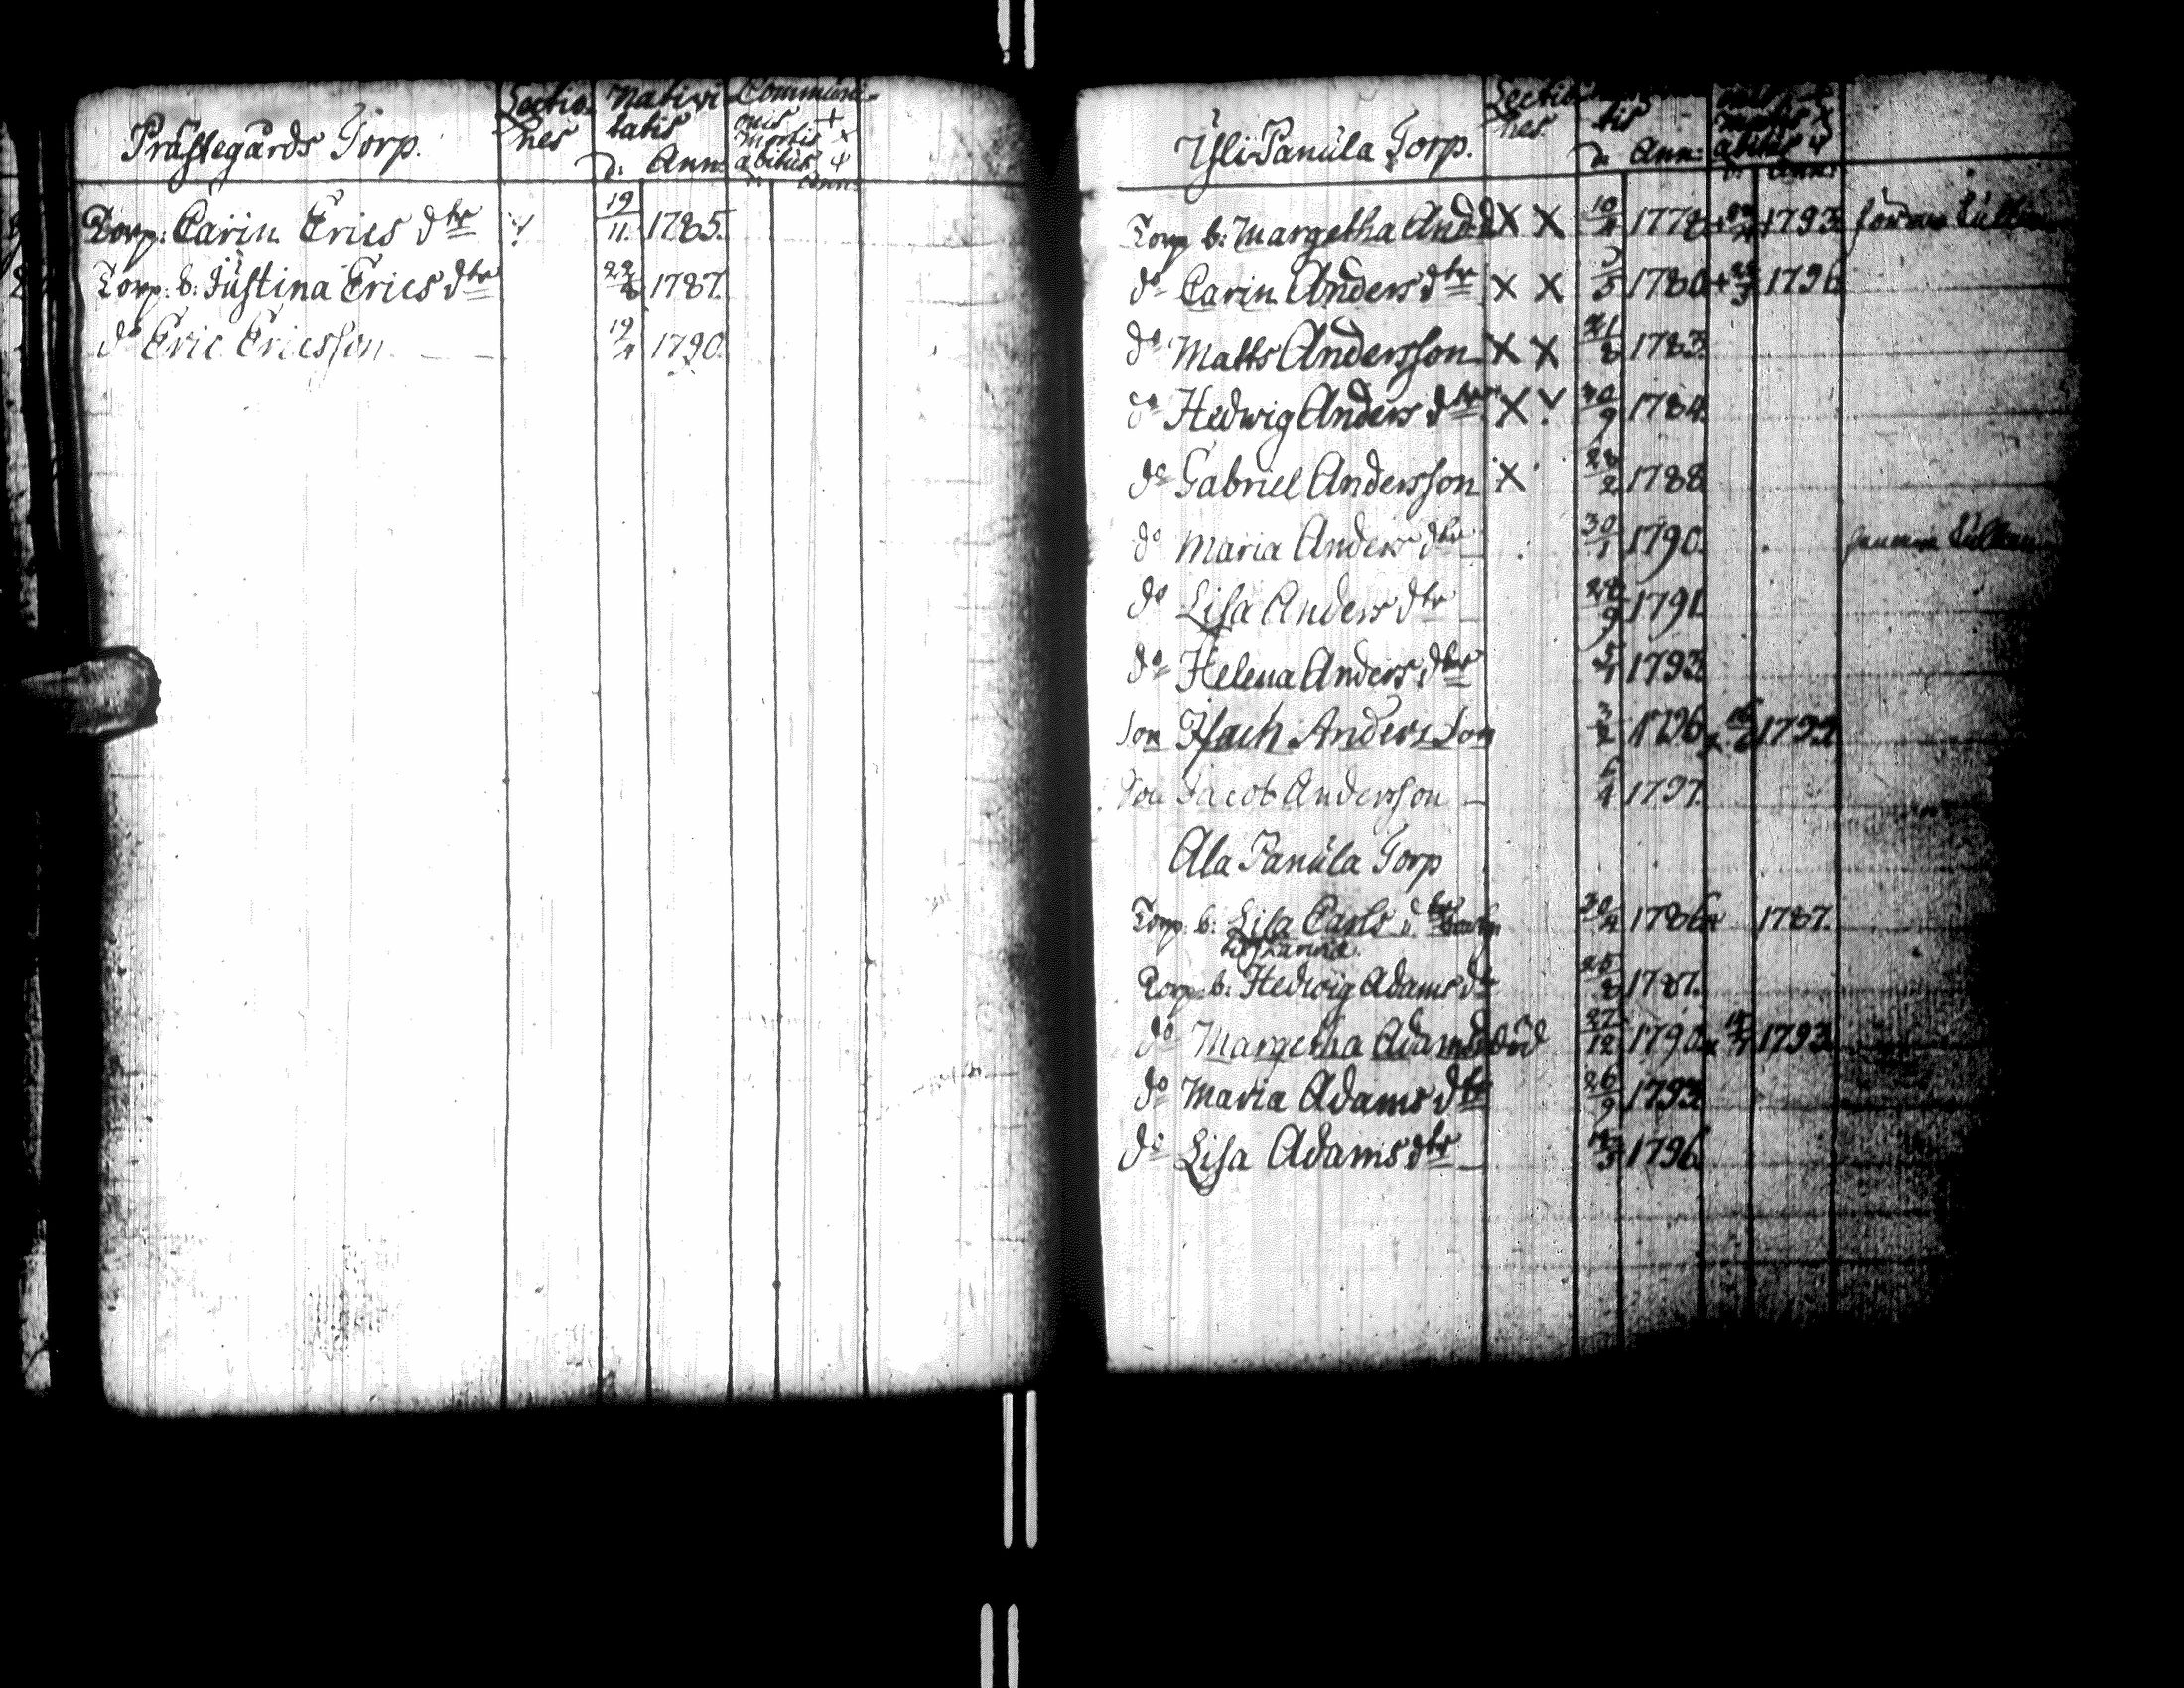 Prästegårds Torp. Lectio- nes Nativi- tatis D: Ann: Communi- onis + mortis x abitus ψ Ann:
Torp: Carin Erics dtr 19/11 1785.
Torp. b: Justina Erics dtr 1787.
do Eric Ericsson 19/4 1790.
Yli Panula Torp. Lectio nes tis D: Ann: mortis x abitus ψ Ann:
Torp b: Margetha And: d X X 10/4 + 1793.
do Carin Anders dtr X X 1780 + 1796
do Matts Andersson X X 21/8 1783.
do Hedwig Anders dtr X 30/9 1784.
do Gabriel Andersson X 28/2 1788
do Maria Anders dtr 30/1 1790.
do Lisa Anders dtr 28/9 1791.
do Helena Anders dtr 1793.
son Isach Andersson 3/2 1796 x
son Jacob Andersson 6/4 1797.
Ala Panula Torp
Torp. b: Lisa Carls d 1786 1787.
Torp. b: Hedwig Adams dr 25/8 1787.
do Margetha Adams död 27/12 1790 x 1793.
do Maria Adams dtr 26/9 1793.
do Lisa Adams dtr 1796.